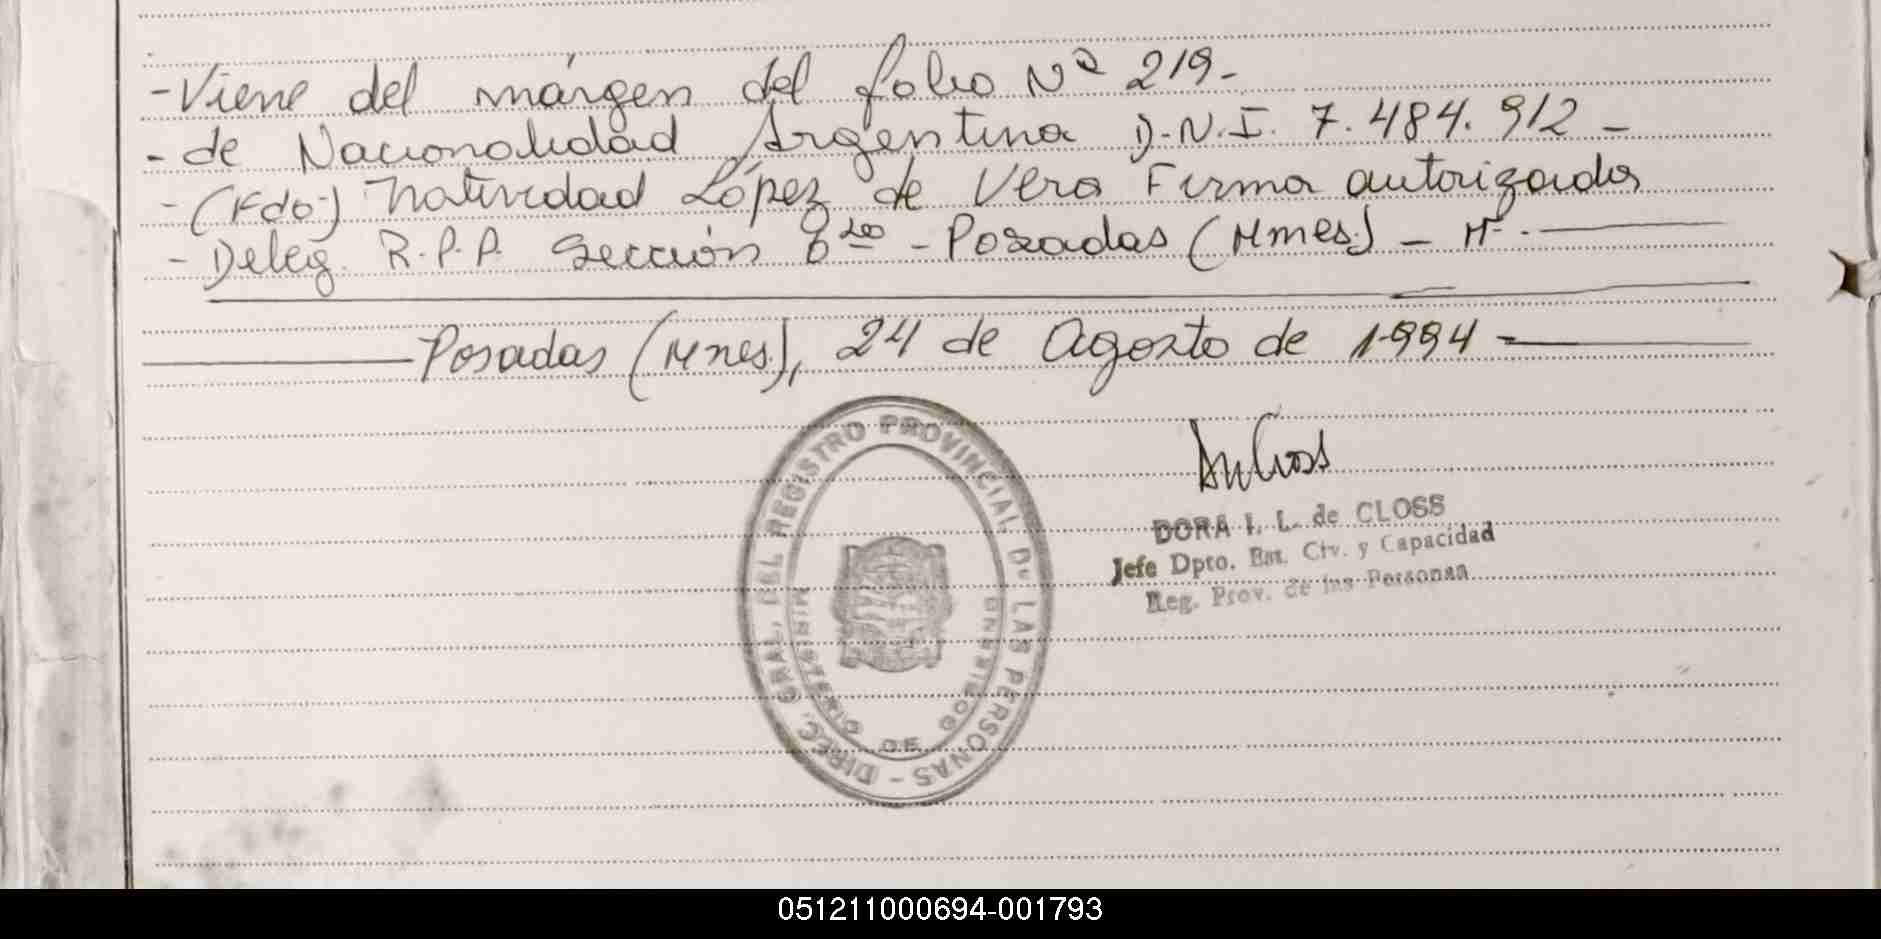 -Viene del márgen del folio Nº 219-
-de Nacionalidad Argentina D.N.I. 7.484.912-
-(Fdo:) Natividad López de Vera Firma autorizada
-Deleg. R.P.P. Sección - Posadas (Mnes.) -
Posadas (Mnes.), 24 de Agosto de 1994-
DIREC. GRAL. DEL REGISTRO PROVINCIAL DE LAS PERSONAS -
MINISTERIO DE GOBIERNO
DORA I. L. de CLOSS
Jefe Dpto. Est. Civ. y Capacidad
Reg. Prov. de las Personas
051211000694-001793